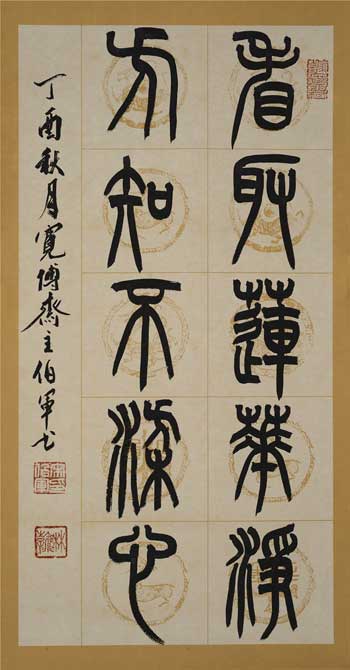 看取蓮華淨
方知不染心
丁酉秋月寬博齋主伯軍書